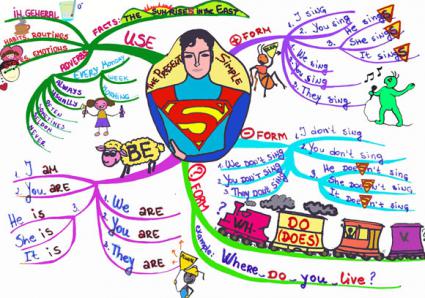 THE PRESENT SIMPLE
USE
FACTS: THE SUN RISES IN the EAST
IN GENERAL
HABITS, ROUTINES
EMOTIONS
ADVERBS
EVERY MONDAY
WEEK
MORNING
ALWAYS
USUALLY
OFTEN
SOMETIMES
SELDOM
NEVER
+ FORM
1. I sing
2. You sing
3. He sings
She sings
It sings
1. We sing
2. You sing
3. They sing
- FORM
1. I don't sing
2. You don't sing
3. He Doesn't sing
She Doesn't sing
It Doesn't sing
1. We DON'T SING
2. YOU DON'T SING
3. THEY DON'T SING
? FORM
?
WH.
DO
(DOES)
V
?
example:
Where DO you live?
BE
1. I AM
2. You ARE
3.
He is
She is
It is
1. We ARE
2. You ARE
3. They ARE